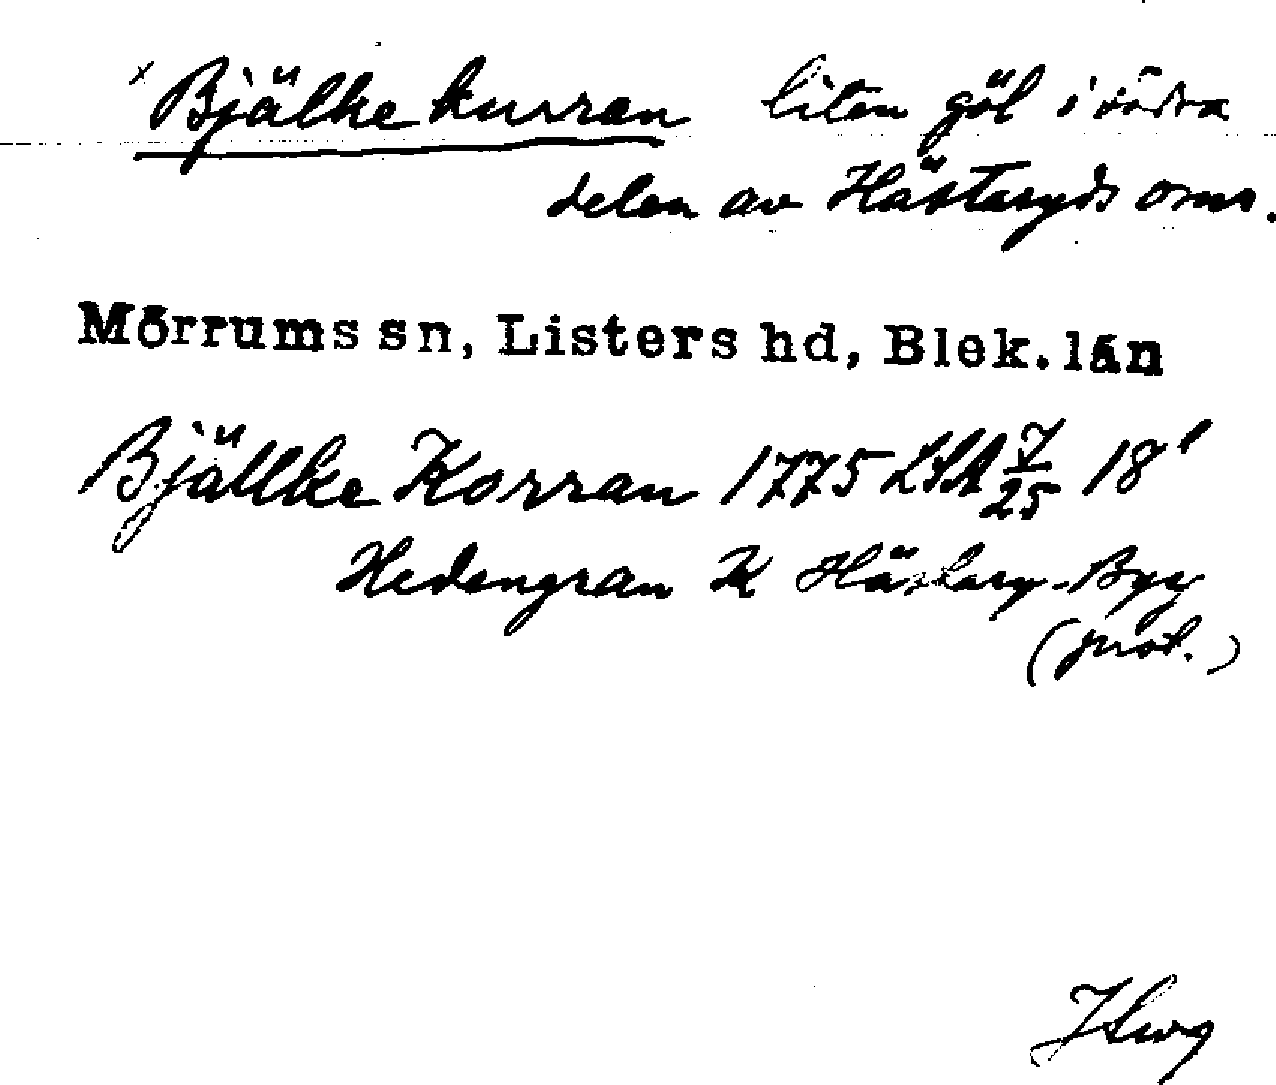 x Bjälkekurran liten göl i södra
delen av Hästaryds
Mörrums sn, Listers hd, Blek. län
Bjällke Korran 1775 LSA 7/25 18'
Hedengran K Hästary-Byy
(prot.)